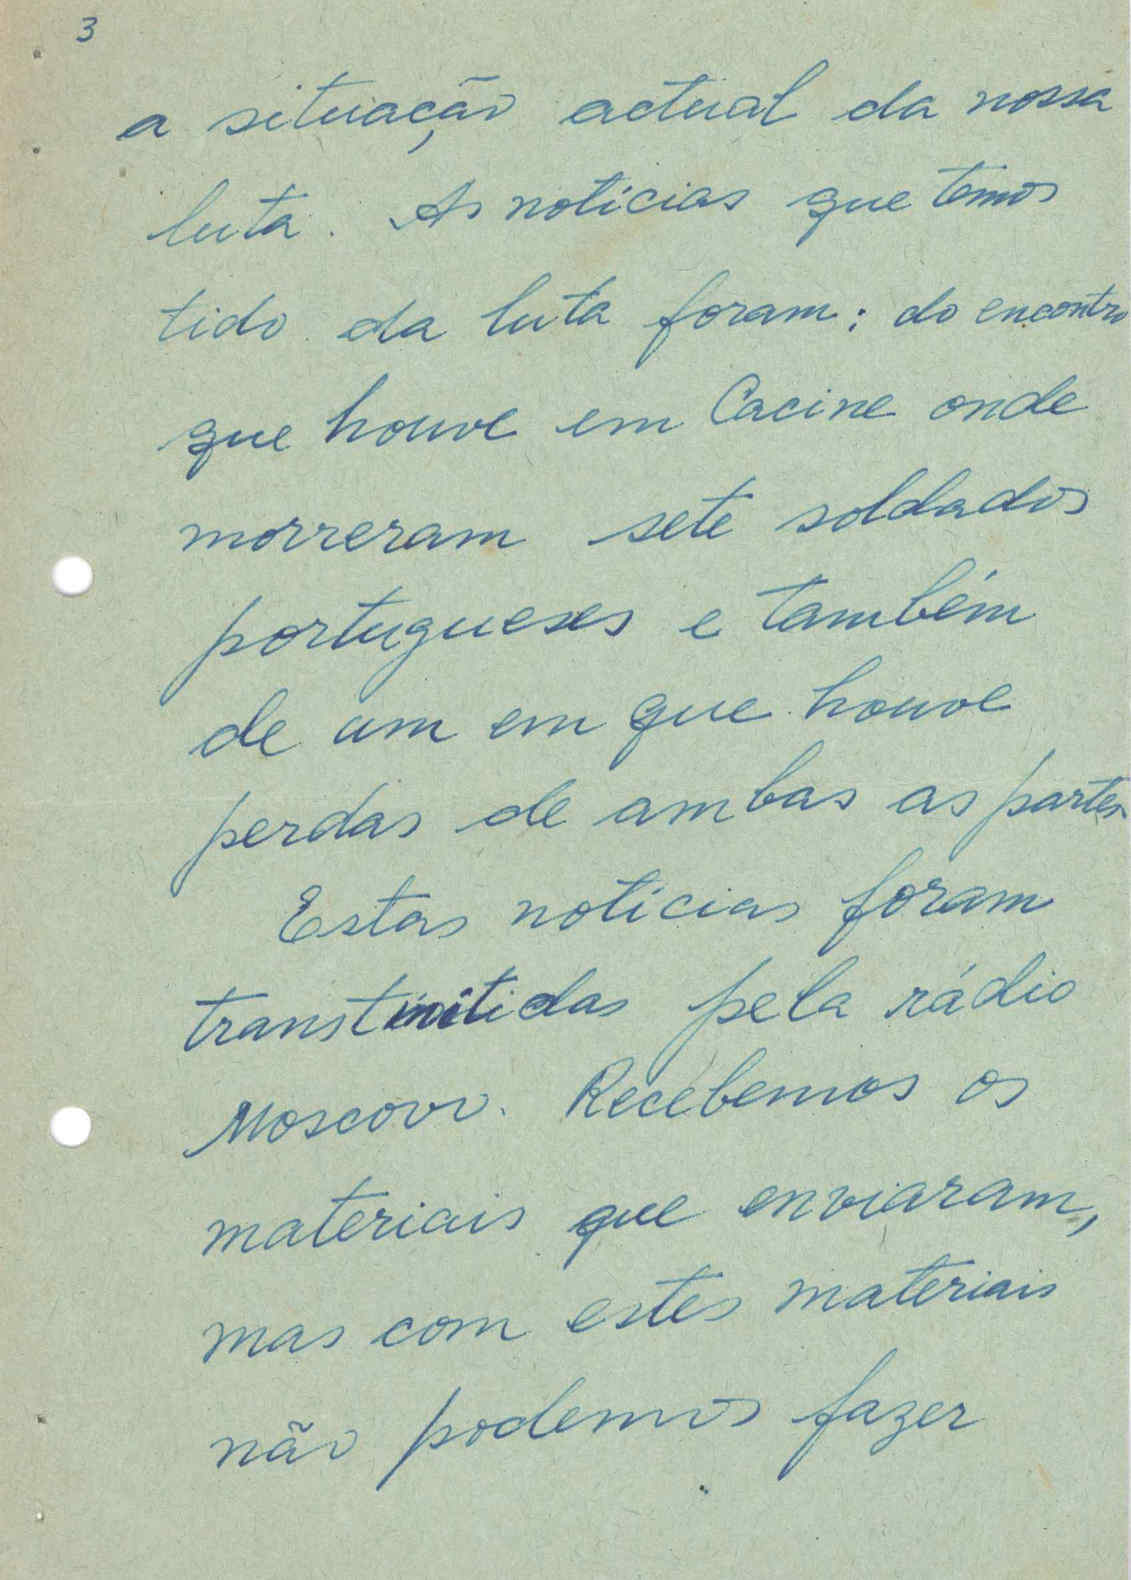 3
a situação actual da nossa
luta. As notícias que temos
tido da luta foram: do encontro
que houve em Cacine onde
morreram sete soldados
portugueses e também
de um em que houve
perdas de ambas as partes
Estas notícias foram
transtmitidas pela rádio
Moscovo. Recebemos os
materiais que enviaram,
mas com estes materiais
não podemos fazer